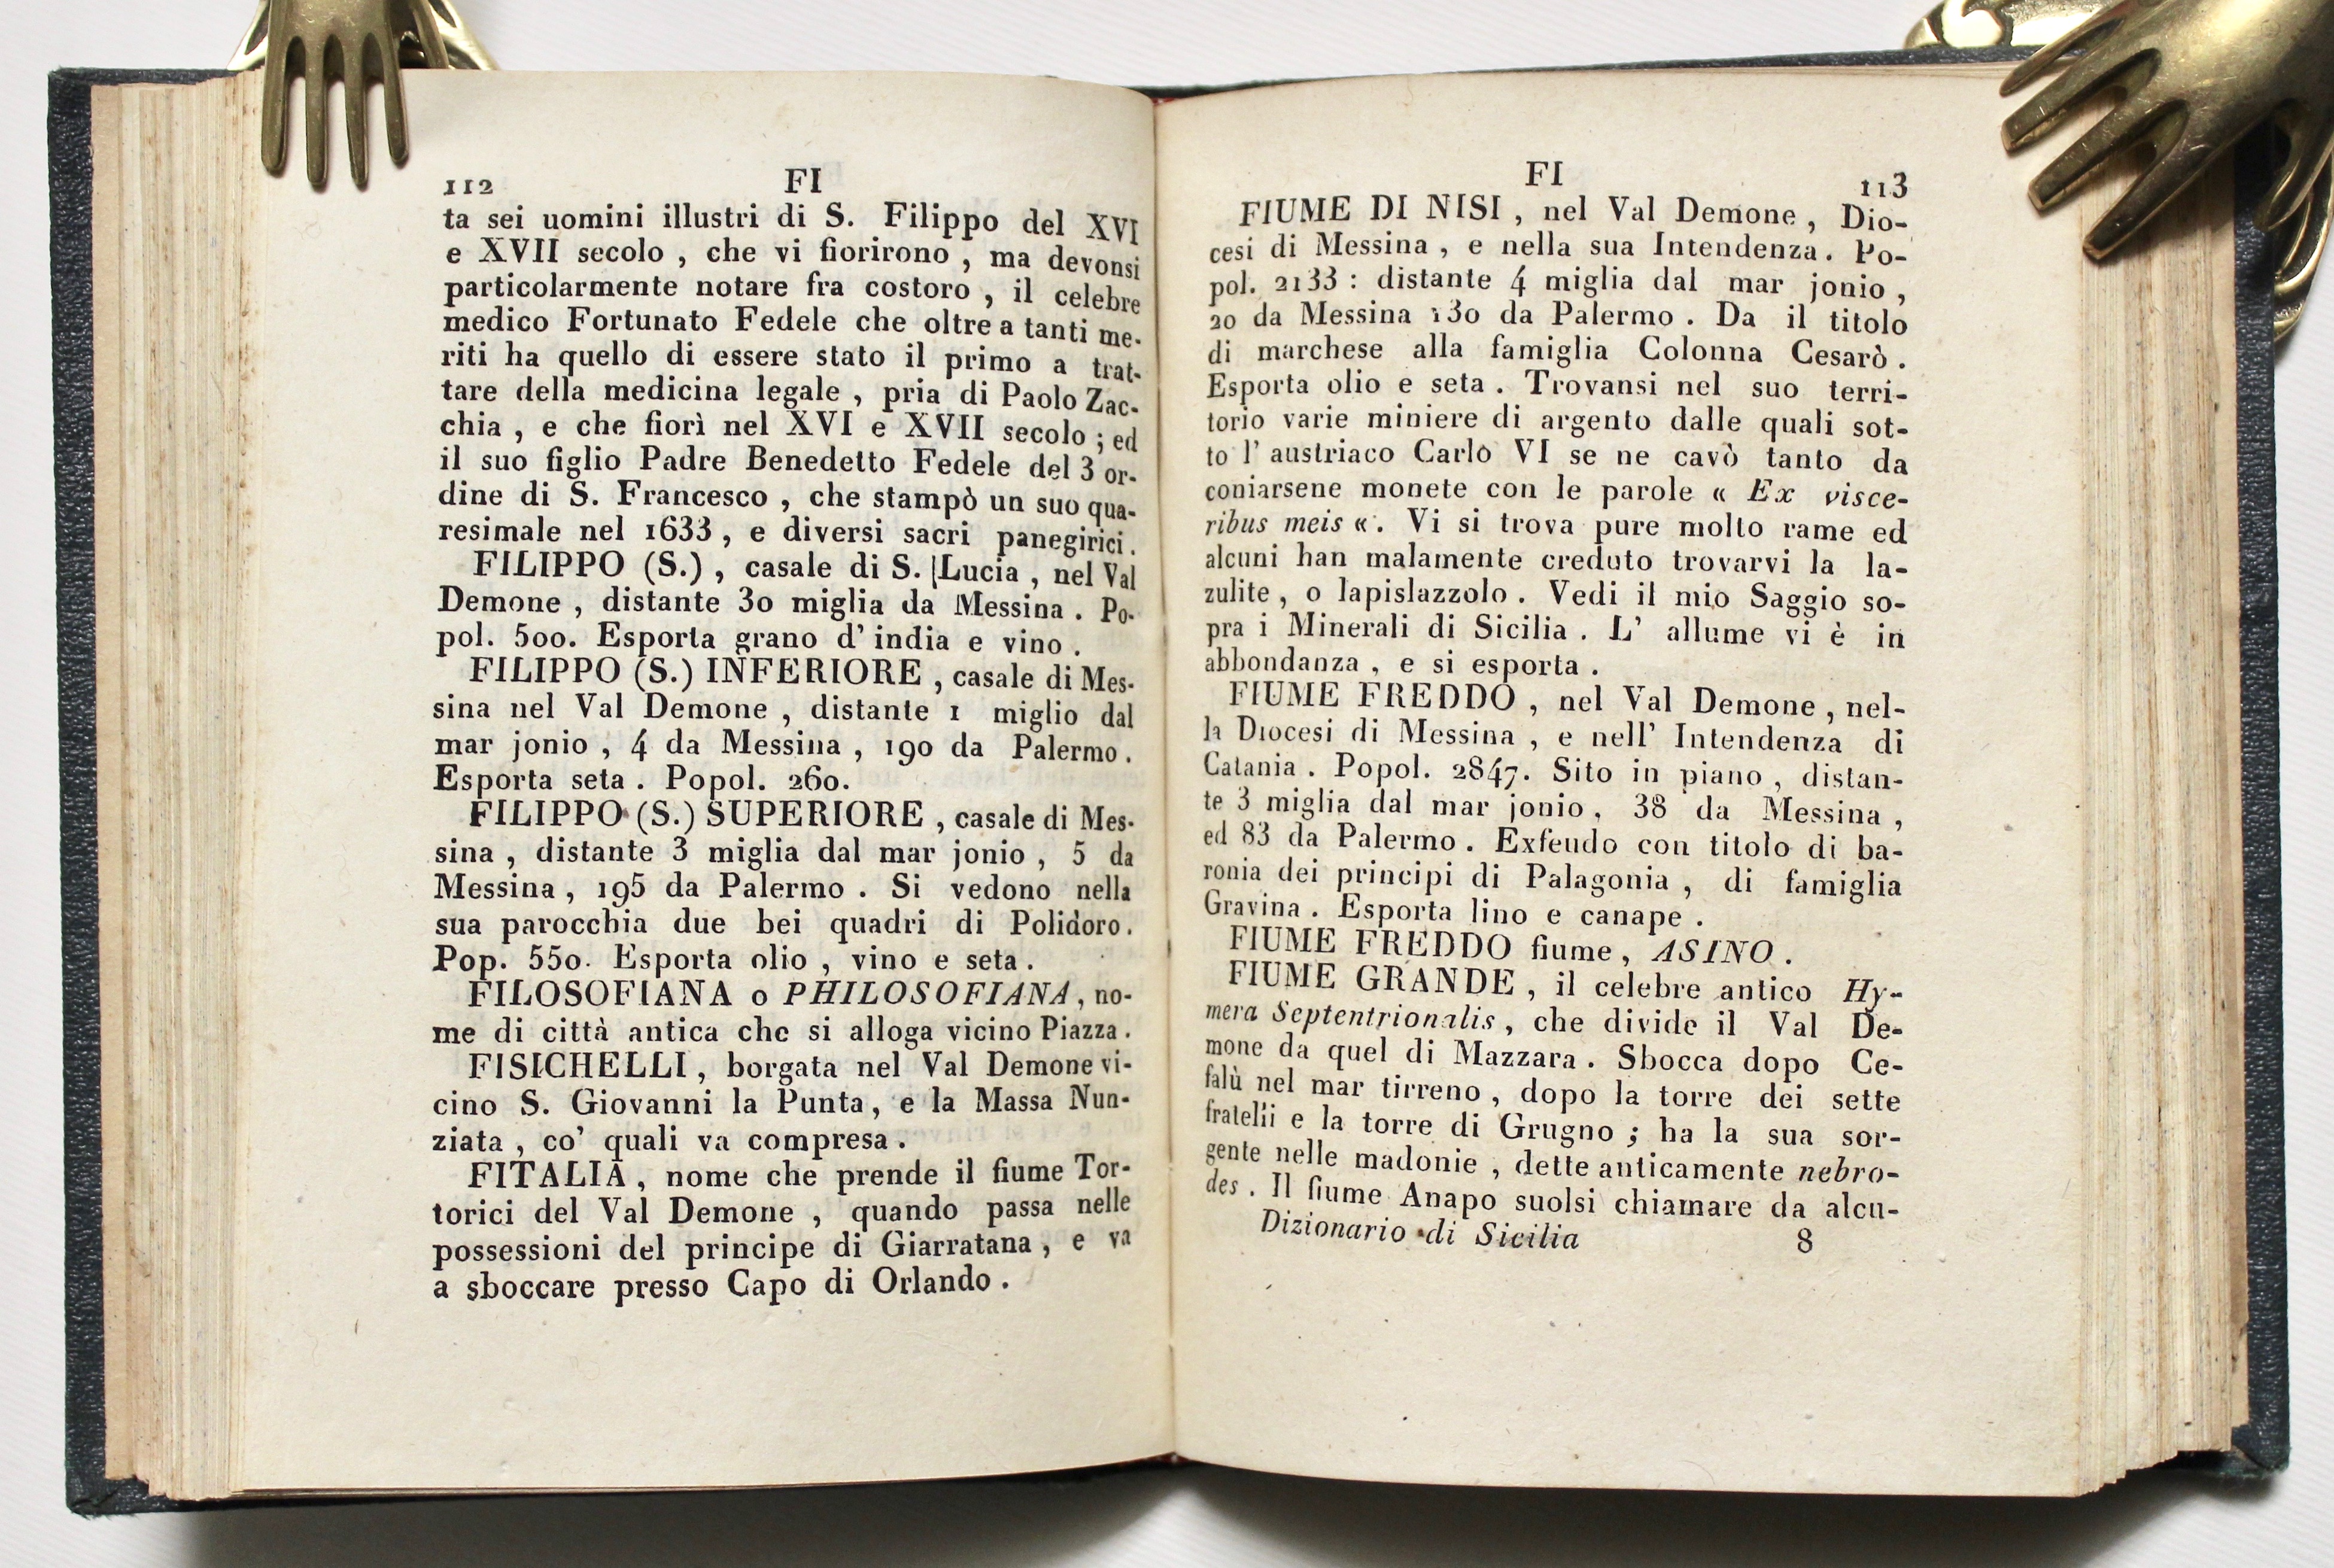 112 FI
ta sei uomini illustri di S. Filippo del XVI
e XVII secolo , che vi fiorirono , ma devonsi
particolarmente notare fra costoro , il celebre
medico Fortunato Fedele che oltre a tanti me-
riti ha quello di essere stato il primo a trat-
tare della medicina legale , pria di Paolo Zac-
chia , e che fiorì nel XVI e XVII secolo ; ed
il suo figlio Padre Benedetto Fedele del 3 or-
dine di S. Francesco , che stampò un suo qua-
resimale nel 1633 , e diversi sacri panegirici .
FILIPPO (S.) , casale di S. |Lucia , nel Val
Demone , distante 30 miglia da Messina . Po-
pol. 500. Esporta grano d' india e vino .
FILIPPO (S.) INFERIORE , casale di Mes-
sina nel Val Demone , distante 1 miglio dal
mar jonio , 4 da Messina , 190 da Palermo .
Esporta seta . Popol. 260.
FILIPPO (S.) SUPERIORE , casale di Mes-
sina , distante 3 miglia dal mar jonio , 5 da
Messina , 195 da Palermo . Si vedono nella
sua parocchia due bei quadri di Polidoro .
Pop. 550. Esporta olio , vino e seta .
FILOSOFIANA o PHILOSOFIANA , no-
me di città antica che si alloga vicino Piazza .
FISICHELLI , borgata nel Val Demone vi-
cino S. Giovanni la Punta , e la Massa Nun-
ziata , co' quali va compresa .
FITALIA , nome che prende il fiume Tor-
torici del Val Demone , quando passa nelle
possessioni del principe di Giarratana , e va
a sboccare presso Capo di Orlando .
FI 113
FIUME DI NISI , nel Val Demone , Dio-
cesi di Messina , e nella sua Intendenza . Po-
pol. 2133 : distante 4 miglia dal mar jonio ,
20 da Messina 130 da Palermo . Da il titolo
di marchese alla famiglia Colonna Cesarò .
Esporta olio e seta . Trovansi nel suo terri-
torio varie miniere di argento dalle quali sot-
to l' austriaco Carlo VI se ne cavò tanto da
coniarsene monete con le parole « Ex visce-
ribus meis « . Vi si trova pure molto rame ed
alcuni han malamente creduto trovarvi la la-
zulite , o lapislazzolo . Vedi il mio Saggio so-
pra i Minerali di Sicilia . L' allume vi è in
abbondanza , e si esporta .
FIUME FREDDO , nel Val Demone , nel-
la Diocesi di Messina , e nell' Intendenza di
Catania . Popol. 2847. Sito in piano , distan-
te 3 miglia dal mar jonio , 38 da Messina ,
ed 83 da Palermo . Exfeudo con titolo di ba-
ronia dei principi di Palagonia , di famiglia
Gravina . Esporta lino e canape .
FIUME FREDDO fiume , ASINO .
FIUME GRANDE , il celebre antico Hy-
mera Septentrionalis , che divide il Val De-
mone da quel di Mazzara . Sbocca dopo Ce-
falù nel mar tirreno , dopo la torre dei sette
fratelli e la torre di Grugno ; ha la sua sor-
gente nelle madonie , dette anticamente nebro-
des . Il fiume Anapo suolsi chiamare da alcu-
Dizionario di Sicilia 8